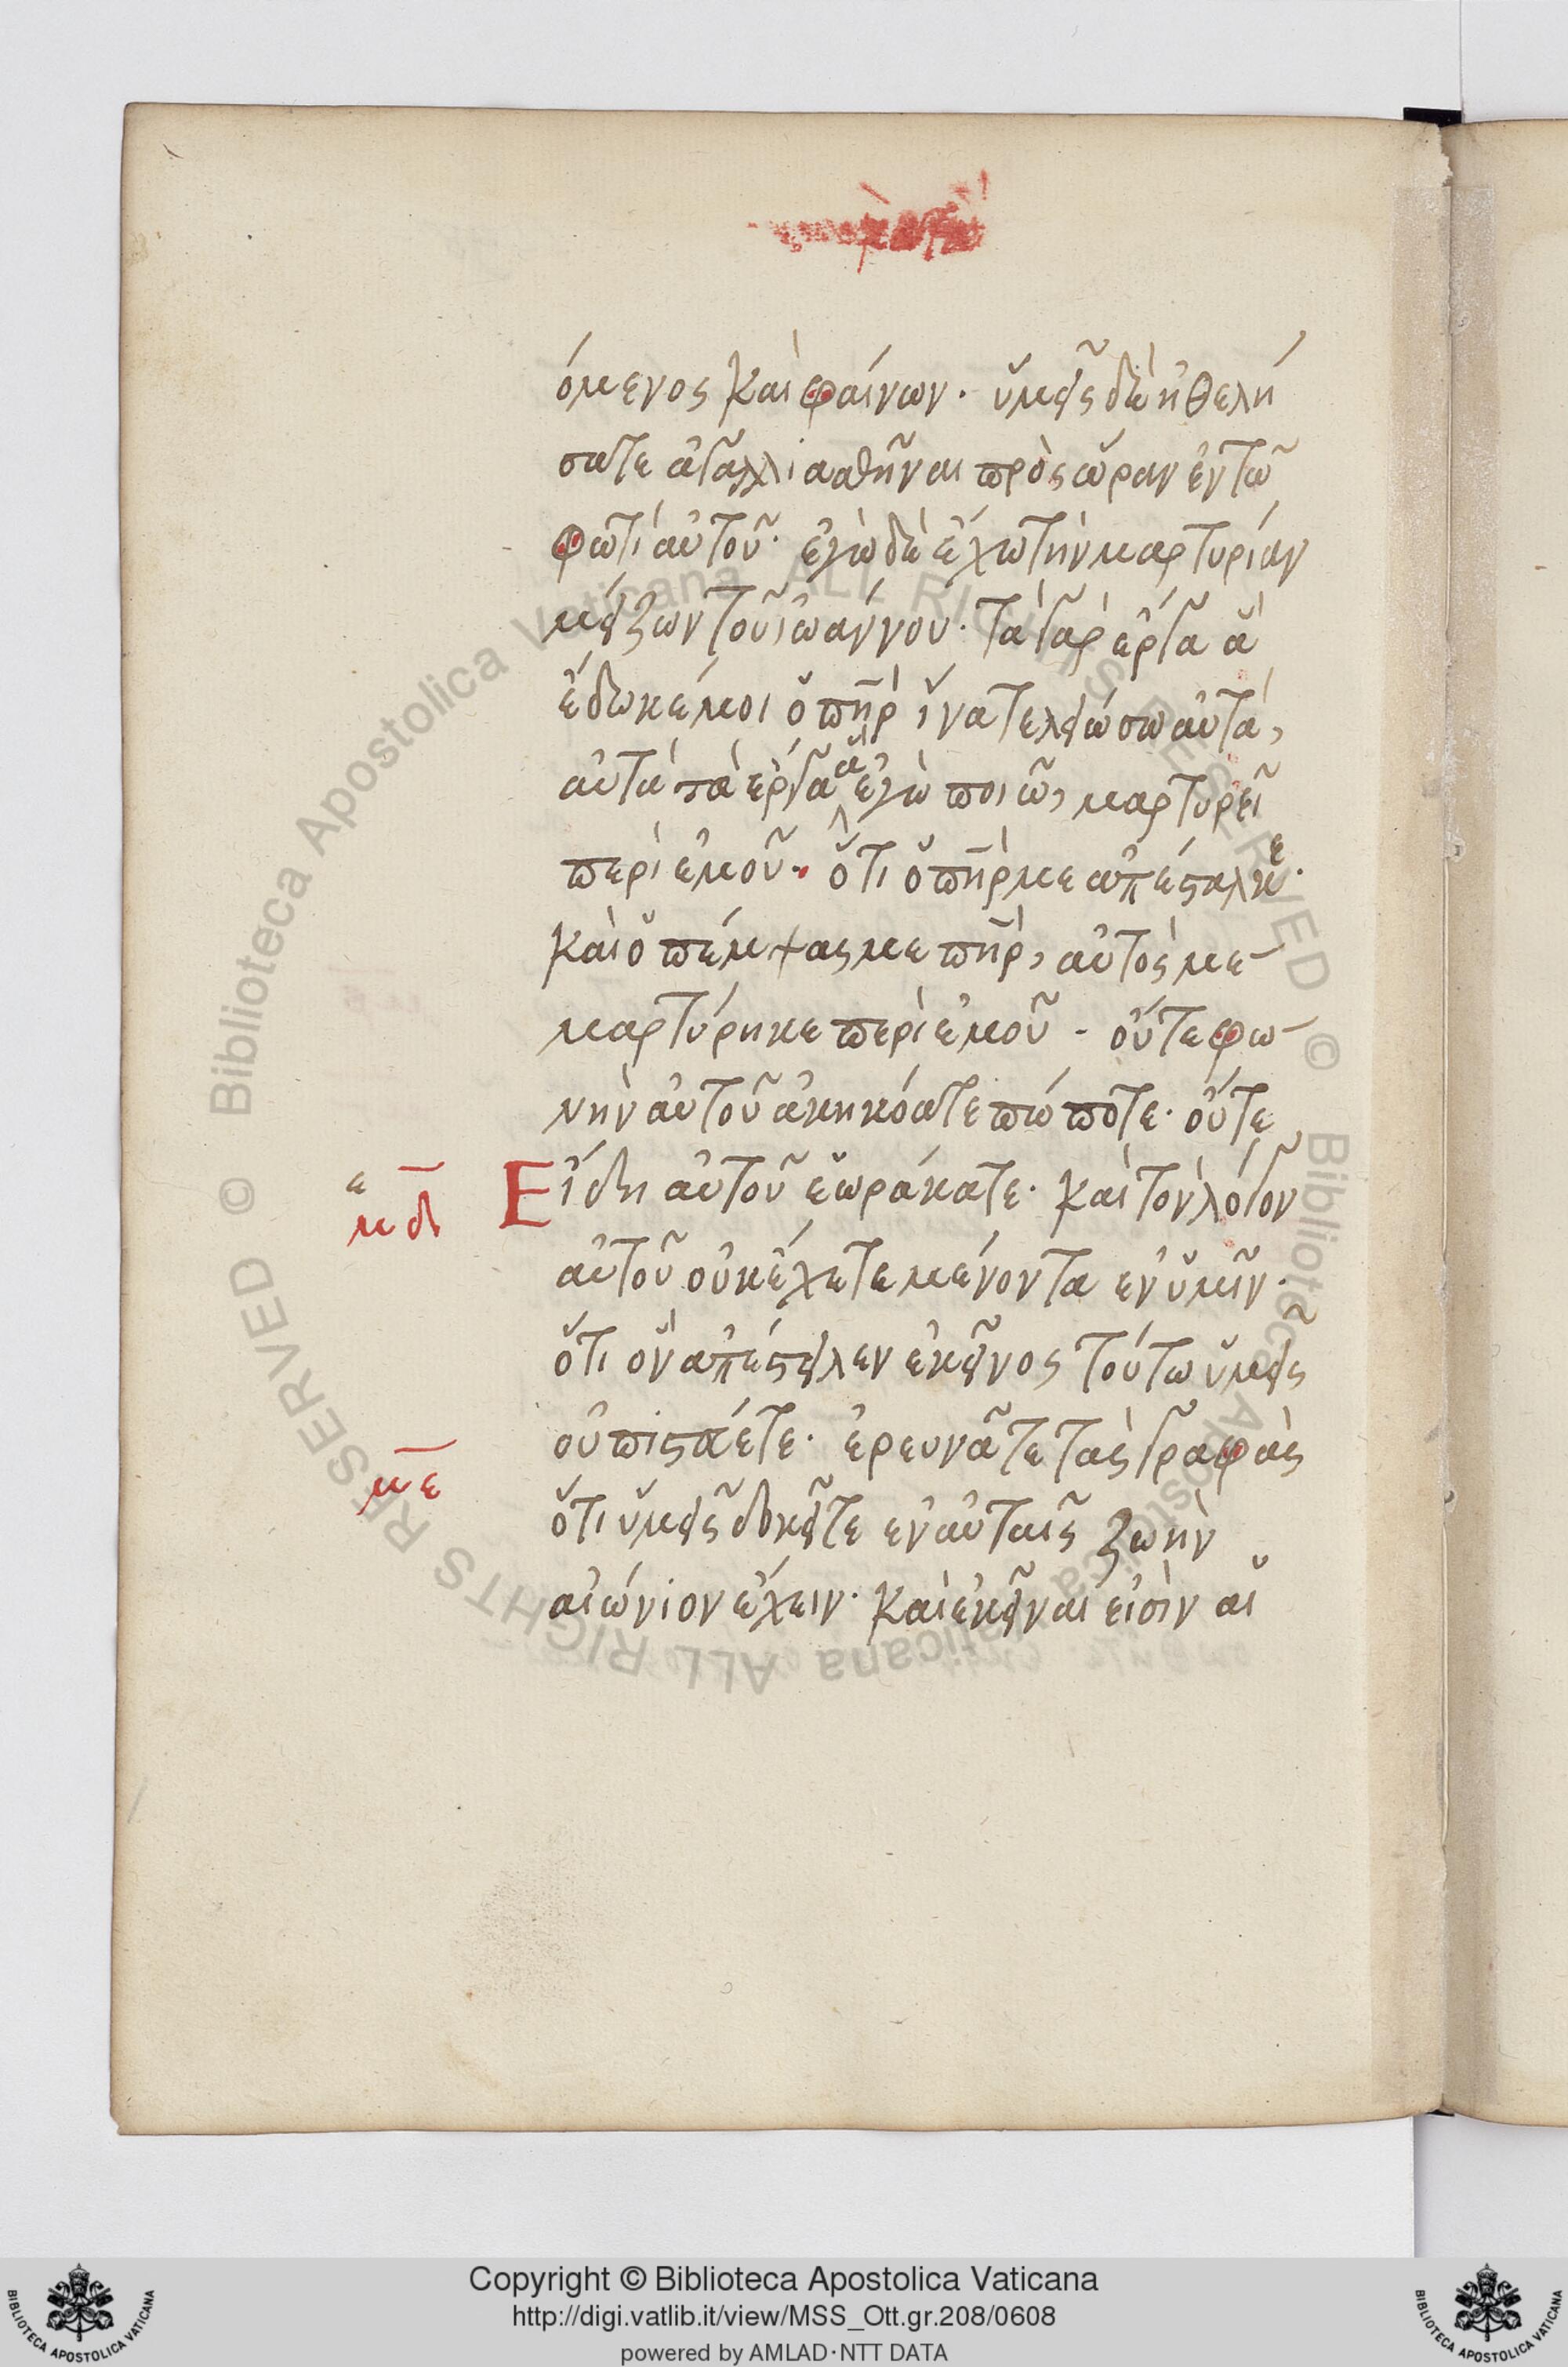 όμενος καὶ φαίνων· ὑμεῖς δὲ ἠθελή
σατε ἀγαλλιαθῆναι πρὸς ὥραν ἐν τῶ
φωτὶ αὐτοῦ· ἐγὼ δὲ ἔχω τὴν μαρτυρίαν
μείζων τοῦ ἰωάννου· τὰ γὰρ ἔργα ἃ
ἔδωκέ μοι ὁ πηρ ἵνα τελειώσω αὐτά,
αὐτὰ τὰ ἔργα ἃ ἐγὼ ποιῶ, μαρτυρεῖ
περὶ ἐμοῦ· ὅτι ὁ πηρ με ἀπέσταλκε·
καὶ ὁ πέμψας με πηρ, αὐτὸς με-
μαρτύρηκε περὶ ἐμοῦ· οὔτε φω-
νὴν αὐτοῦ ἀκηκόατε πώποτε· οὔτε
ε
μδ
Εἴδη αὐτοῦ ἑωράκατε· καὶ τὸν λόγον
αὐτοῦ οὐκ ἔχετε μένοντα ἐν ὑμῖν·
ὅτι ὃν ἀπέστειλεν ἐκεῖνος τούτω ὑμεῖς
με
οὐ πιστεύετε· ἐρευνᾶτε τὰς γραφὰς
ὅτι ὑμεῖς δοκεῖτε ἐν αὐταῖς ζωὴν
αἰώνιον ἔχειν· καὶ ἐκεῖναι εἰσὶν αἱ
Copyright © Biblioteca Apostolica Vaticana
http://digi.vatlib.it/view/MSS_Ott.gr.208/0608
powered by AMLAD·NTT DATA